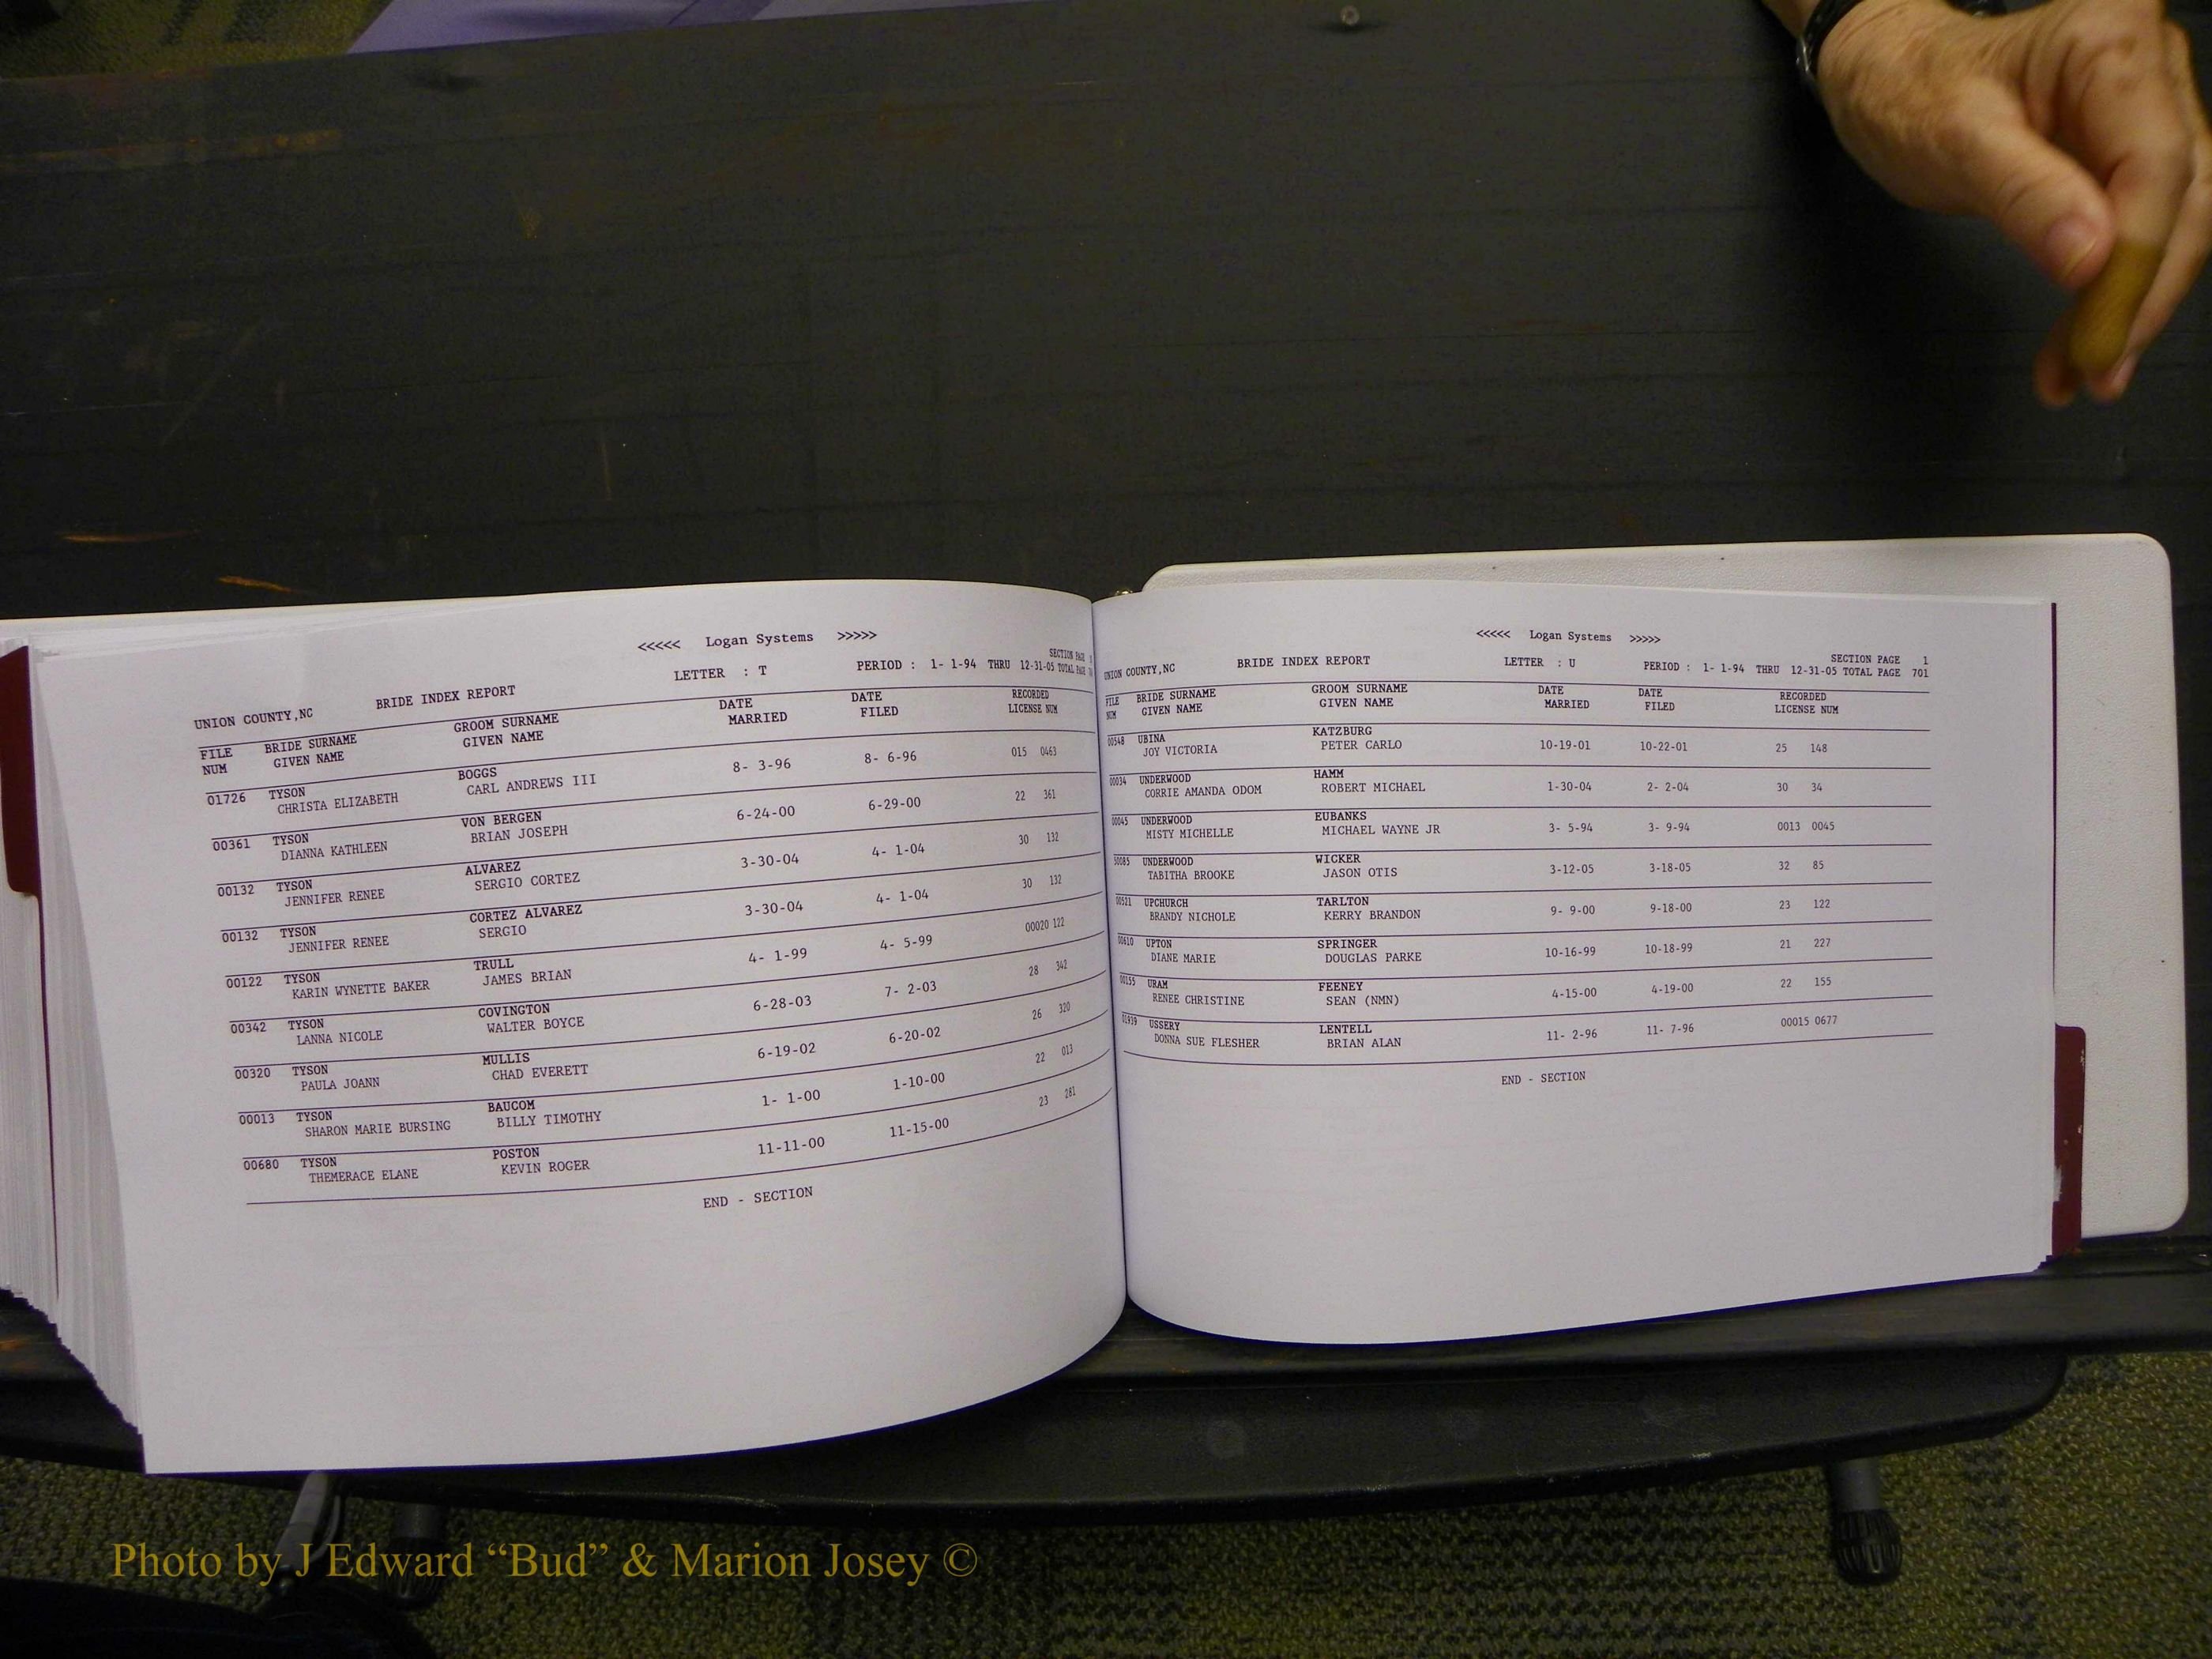 <<<<< Logan Systems >>>>>
SECTION PAGE
UNION COUNTY,NC BRIDE INDEX REPORT LETTER : T PERIOD : 1- 1-94 THRU 12-31-05 TOTAL PAGE
FILE BRIDE SURNAME GROOM SURNAME DATE DATE RECORDED
NUM GIVEN NAME GIVEN NAME MARRIED FILED LICENSE NUM
01726 TYSON BOGGS 8- 3-96 8- 6-96 015 0463
CHRISTA ELIZABETH CARL ANDREWS III
00361 TYSON VON BERGEN 6-24-00 6-29-00 22 361
DIANNA KATHLEEN BRIAN JOSEPH
00132 TYSON ALVAREZ 3-30-04 4- 1-04 30 132
JENNIFER RENEE SERGIO CORTEZ
00132 TYSON CORTEZ ALVAREZ 3-30-04 4- 1-04 30 132
JENNIFER RENEE SERGIO
00122 TYSON TRULL 4- 1-99 4- 5-99 00020 122
KARIN WYNETTE BAKER JAMES BRIAN
00342 TYSON COVINGTON 6-28-03 7- 2-03 28 342
LANNA NICOLE WALTER BOYCE
00320 TYSON MULLIS 6-19-02 6-20-02 26 320
PAULA JOANN CHAD EVERETT
00013 TYSON BAUCOM 1- 1-00 1-10-00 22 013
SHARON MARIE BURSING BILLY TIMOTHY
00680 TYSON POSTON 11-11-00 11-15-00 23 281
THEMERACE ELANE KEVIN ROGER
END - SECTION
<<<<< Logan Systems >>>>>
SECTION PAGE 1
UNION COUNTY,NC BRIDE INDEX REPORT LETTER : U PERIOD : 1- 1-94 THRU 12-31-05 TOTAL PAGE 701
FILE BRIDE SURNAME GROOM SURNAME DATE DATE RECORDED
NUM GIVEN NAME GIVEN NAME MARRIED FILED LICENSE NUM
00548 UBINA KATZBURG 10-19-01 10-22-01 25 148
JOY VICTORIA PETER CARLO
00034 UNDERWOOD HAMM 1-30-04 2- 2-04 30 34
CORRIE AMANDA ODOM ROBERT MICHAEL
00045 UNDERWOOD EUBANKS 3- 5-94 3- 9-94 0013 0045
MISTY MICHELLE MICHAEL WAYNE JR
UNDERWOOD WICKER 3-12-05 3-18-05 32 85
TABITHA BROOKE JASON OTIS
00521 UPCHURCH TARLTON 9- 9-00 9-18-00 23 122
BRANDY NICHOLE KERRY BRANDON
00610 UPTON SPRINGER 10-16-99 10-18-99 21 227
DIANE MARIE DOUGLAS PARKE
00155 URAM FEENEY 4-15-00 4-19-00 22 155
RENEE CHRISTINE SEAN (NMN)
01939 USSERY LENTELL 11- 2-96 11- 7-96 00015 0677
DONNA SUE FLESHER BRIAN ALAN
END - SECTION
Photo by J Edward “Bud” & Marion Josey ©